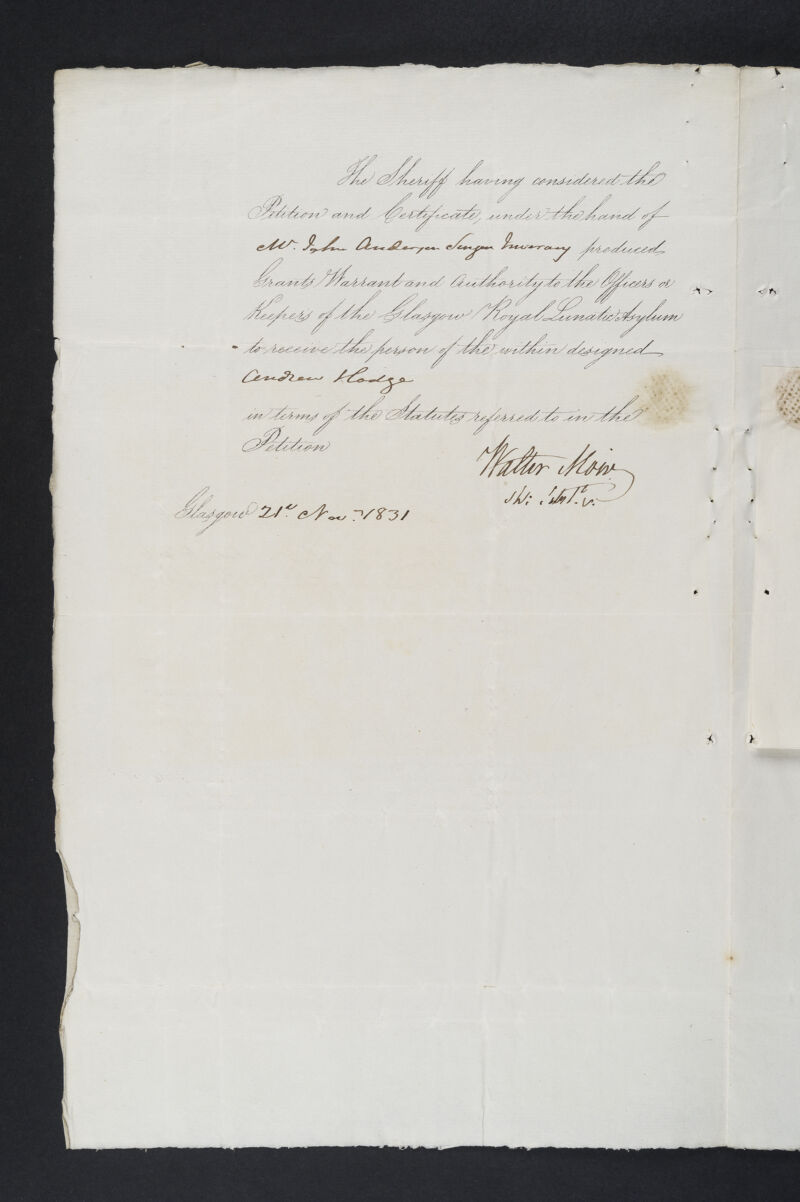 The Sheriff having considered the
Petition and Certificate, under the hand of
Mr. John Anderson Surgeon Inverary produced
Grants Warrant and Authority to the Officers or
Keepers of the Glasgow Royal Lunatic Asylum
to receive the person of the within designed
Andrew Hodge
in terms of the Statutes referred to in the
Petition
Walter Moir
Glasgow 21st Novr. 1831